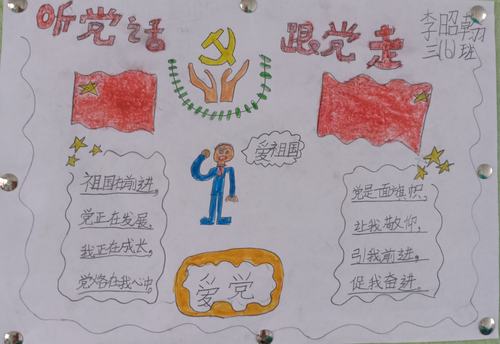 听党话
跟党走
李昭翔
三(6)班
爱祖国
祖国在前进。
党正在发展，
我正在成长，
党烙在我心中。
党是一面旗帜，
让我敬仰，
引我前进，
促我奋进。
爱党